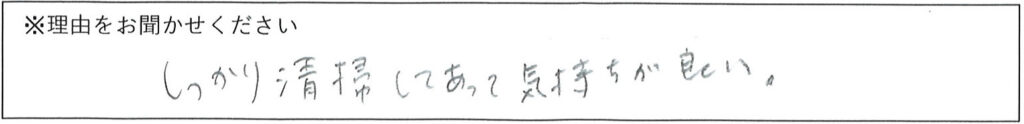 ※理由をお聞かせください
しっかり清掃してあって気持ちが良い。